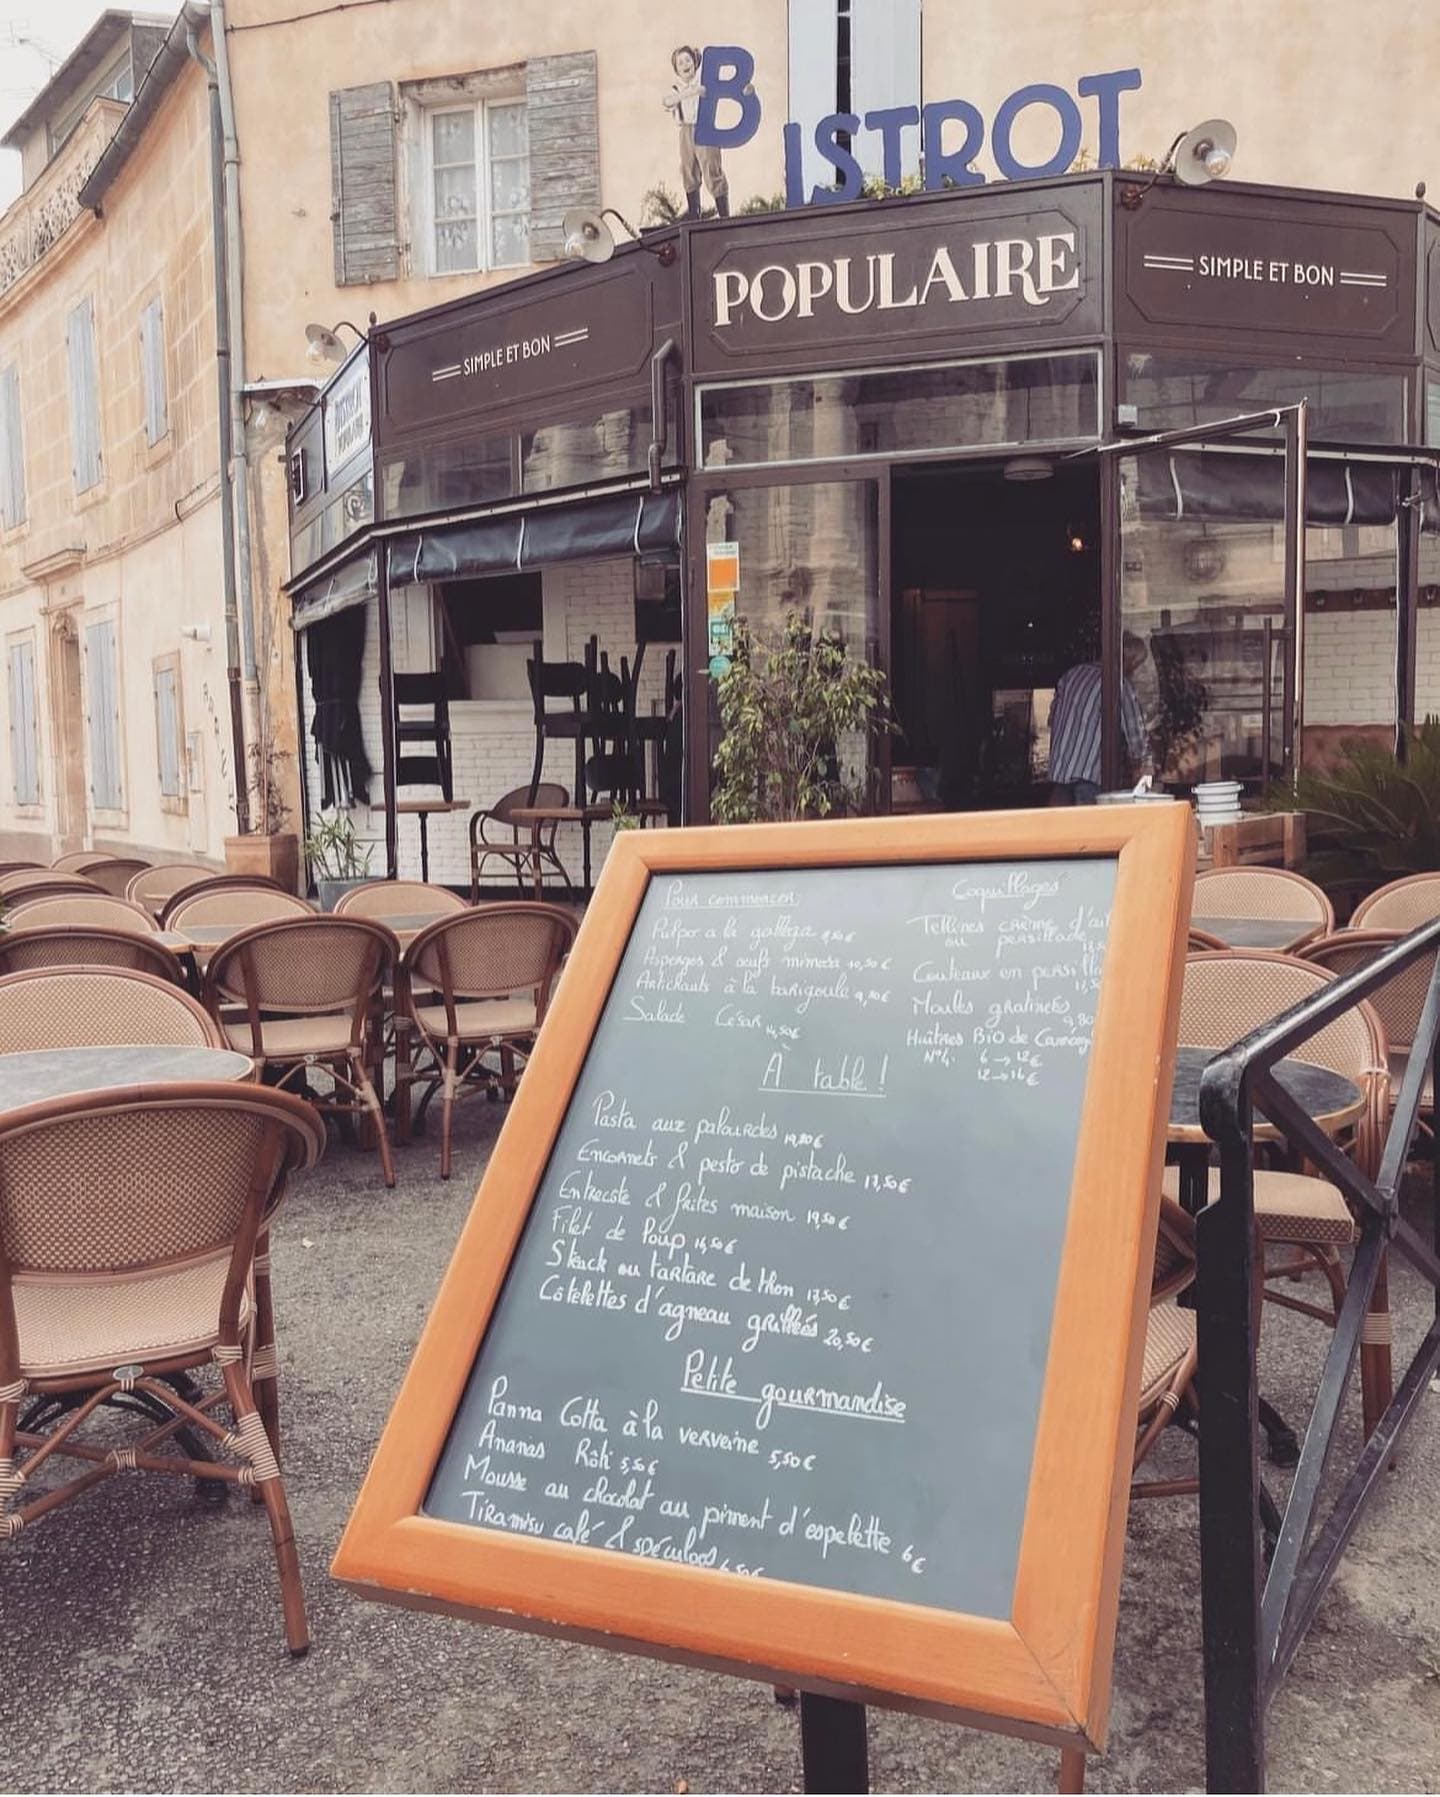 BISTROT
POPULAIRE
SIMPLE ET BON
SIMPLE ET BON
Pour commencer
Pulpo a la gallega 9,50€
Asperges & oeufs mimosa 10,50€
Artichauts à la barigoule 9,50€
Salade César 14,50€
Coquillages
Tellines crème d'ail
ou persillade
Couteaux en persilla
Moules gratinées
9,80
Huîtres BiO de Camarg
N°4. 6 → 12€
12 → 16€
À table !
Pasta aux palourdes 19,80€
Encornets & pesto de pistache 17,50€
Entrecôte & frites maison 19,50€
Filet de Loup 14,50€
Steack ou tartare de thon 17,50€
Côtelettes d'agneau grillées 20,50€
Petite gourmandise
Panna Cotta à la verveine 5,50€
Ananas Rôti 5,50€
Mousse au chocolat au piment d'espelette 6€
Tiramisu café & spéculoos 6,50€